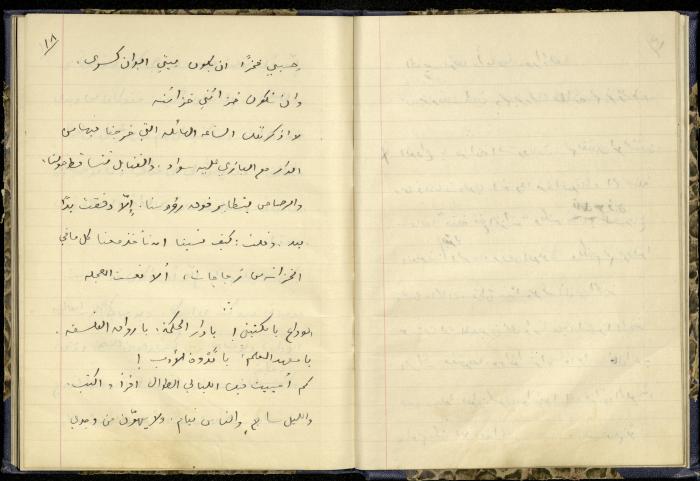 ١٨
حسبي فخرًا ان يكون بيتي ايوان كسرى.
وان تكون خزانتي خزائنه
لا اذكر تلك الساعة الهائلة التي خرجنا فيها من
الدار مع اليازجي عليه سواد، والقنابل تتساقط حولنا،
والرصاص يتطاير فوق رؤوسنا، إلّا وقفت يدًا
بيد، وقلت: كيف نسينا ان نأخذ معنا كل ما في
الخزانة من زجاجات، ألا لعنت العجلة
الوداع يا مكتبتي! يا دار الحكمة، يا رواق الفلسفة.
يا معهد العلم، يا ندوة الادب!
كم أحييت فيك الليالي الطوال اقرأ و اكتب،
والليل ساجٍ والناس نيام، ولا يهوّن من وجدي